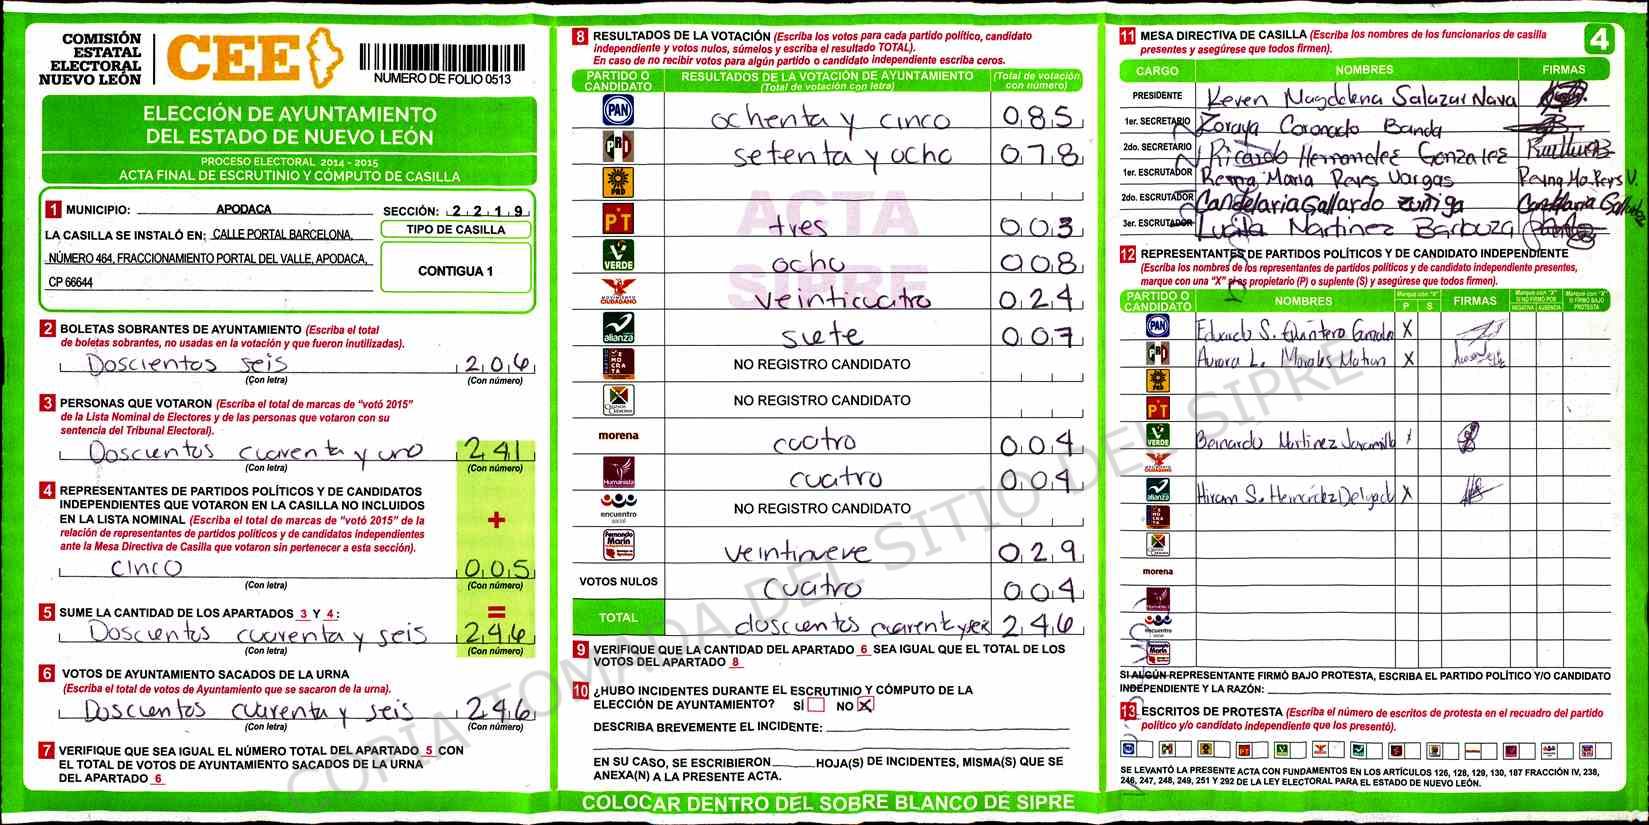 COMISIÓN
ESTATAL
ELECTORAL
NUEVO LEÓN
CEE
NUMERO DE FOLIO 0513
ELECCIÓN DE AYUNTAMIENTO
DEL ESTADO DE NUEVO LEÓN
PROCESO ELECTORAL 2014 - 2015
ACTA FINAL DE ESCRUTINIO Y CÓMPUTO DE CASILLA
1 MUNICIPIO: APODACA SECCIÓN: 2 2 1 9
LA CASILLA SE INSTALÓ EN: CALLE PORTAL BARCELONA,
NÚMERO 464, FRACCIONAMIENTO PORTAL DEL VALLE, APODACA,
CP 66644
TIPO DE CASILLA
CONTIGUA 1
2 BOLETAS SOBRANTES DE AYUNTAMIENTO (Escriba el total
de boletas sobrantes, no usadas en la votación y que fueron inutilizadas).
Doscientos seis 2 0 6
(Con letra) (Con número)
3 PERSONAS QUE VOTARON (Escriba el total de marcas de "votó 2015"
de la Lista Nominal de Electores y de las personas que votaron con su
sentencia del Tribunal Electoral).
Doscientos cuarenta y uno 2 4 1
(Con letra) (Con número)
4 REPRESENTANTES DE PARTIDOS POLÍTICOS Y DE CANDIDATOS
INDEPENDIENTES QUE VOTARON EN LA CASILLA NO INCLUIDOS
EN LA LISTA NOMINAL (Escriba el total de marcas de "votó 2015" de la
relación de representantes de partidos políticos y de candidatos independientes
ante la Mesa Directiva de Casilla que votaron sin pertenecer a esta sección).
+
cinco 0 0 5
(Con letra) (Con número)
5 SUME LA CANTIDAD DE LOS APARTADOS 3 Y 4: =
Doscientos cuarenta y seis 2 4 6
(Con letra) (Con número)
6 VOTOS DE AYUNTAMIENTO SACADOS DE LA URNA
(Escriba el total de votos de Ayuntamiento que se sacaron de la urna).
Doscientos cuarenta y seis 2 4 6
(Con letra) (Con número)
7 VERIFIQUE QUE SEA IGUAL EL NÚMERO TOTAL DEL APARTADO 5 CON
EL TOTAL DE VOTOS DE AYUNTAMIENTO SACADOS DE LA URNA
DEL APARTADO 6
8 RESULTADOS DE LA VOTACIÓN (Escriba los votos para cada partido político, candidato
independiente y votos nulos, súmelos y escriba el resultado TOTAL).
En caso de no recibir votos para algún partido o candidato independiente escriba ceros.
PARTIDO O CANDIDATO RESULTADOS DE LA VOTACIÓN DE AYUNTAMIENTO (Total de votación con letra) (Total de votación con número)
PAN ochenta y cinco 0 8 5
PRI setenta y ocho 0 7 8
PRD
PT tres 0 0 3
VERDE ocho 0 0 8
MOVIMIENTO CIUDADANO veinticuatro 0 2 4
alianza siete 0 0 7
DEMOCRATA NO REGISTRO CANDIDATO
NO REGISTRO CANDIDATO
morena cuatro 0 0 4
Humanista cuatro 0 0 4
encuentro social NO REGISTRO CANDIDATO
Fernando Marín veintinueve 0 2 9
VOTOS NULOS cuatro 0 0 4
TOTAL doscientos cuarenta y seis 2 4 6
ACTA
SIPRE
COPIA TOMADA DEL SITIO DEL SIPRE
9 VERIFIQUE QUE LA CANTIDAD DEL APARTADO 6 SEA IGUAL QUE EL TOTAL DE LOS
VOTOS DEL APARTADO 8
10 ¿HUBO INCIDENTES DURANTE EL ESCRUTINIO Y CÓMPUTO DE LA
ELECCIÓN DE AYUNTAMIENTO? SÍ NO X
DESCRIBA BREVEMENTE EL INCIDENTE:
EN SU CASO, SE ESCRIBIERON HOJA(S) DE INCIDENTES, MISMA(S) QUE SE
ANEXA(N) A LA PRESENTE ACTA.
COLOCAR DENTRO DEL SOBRE BLANCO DE SIPRE
11 MESA DIRECTIVA DE CASILLA (Escriba los nombres de los funcionarios de casilla
presentes y asegúrese que todos firmen).
4
CARGO NOMBRES FIRMAS
PRESIDENTE Keren Magdalena Salazar Nava
1er. SECRETARIO Zoraya Coronado Banda
2do. SECRETARIO Ricardo Hernandez Gonzalez
1er. ESCRUTADOR Reyna Maria Reyes Vargas Reyna Ma. Reys V.
2do. ESCRUTADOR Candelaria Gallardo zuñiga Candelaria Gallardo
3er. ESCRUTADOR Lucila Martinez Barbuza
12 REPRESENTANTES DE PARTIDOS POLÍTICOS Y DE CANDIDATO INDEPENDIENTE
(Escriba los nombres de los representantes de partidos políticos y de candidato independiente presentes,
marque con una "X" si es propietario (P) o suplente (S) y asegúrese que todos firmen).
PARTIDO O CANDIDATO NOMBRES Marque con "X" P S FIRMAS Marque con "X" SI NO FIRMÓ POR NEGATIVA AUSENCIA Marque con "X" SI FIRMÓ BAJO PROTESTA
PAN Eduardo S. Quintero X
PRI Aurora L. Morales X
PRD
PT
VERDE Bernardo Martinez Jaramillo X
MOVIMIENTO CIUDADANO
alianza Hiram S. Hernández Delgado X
DEMOCRATA
morena
Humanista
encuentro social
Fernando Marín
SI ALGÚN REPRESENTANTE FIRMÓ BAJO PROTESTA, ESCRIBA EL PARTIDO POLÍTICO Y/O CANDIDATO
INDEPENDIENTE Y LA RAZÓN:
13 ESCRITOS DE PROTESTA (Escriba el número de escritos de protesta en el recuadro del partido
político y/o candidato independiente que los presentó).
SE LEVANTÓ LA PRESENTE ACTA CON FUNDAMENTOS EN LOS ARTÍCULOS 126, 128, 129, 130, 187 FRACCIÓN IV, 238,
246, 247, 248, 249, 251 Y 292 DE LA LEY ELECTORAL PARA EL ESTADO DE NUEVO LEÓN.